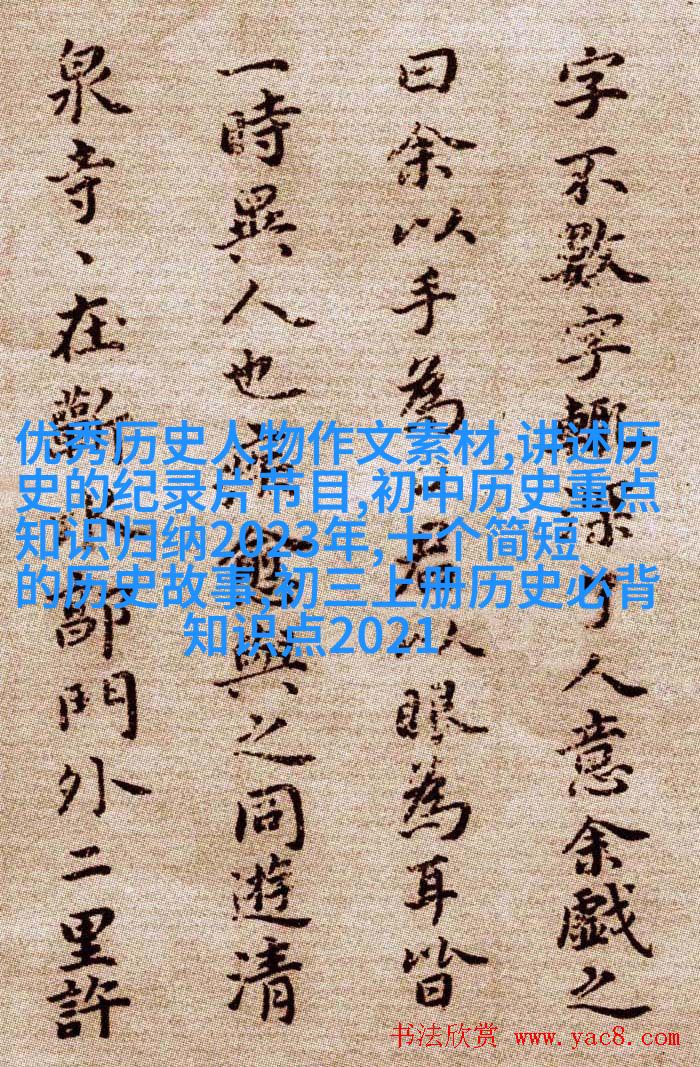 字不數字人意余戲之
曰余以手為以眼為耳皆
一時異人也與之同遊清
泉寺、在蘄郭門外二里許
优秀历史人物作文素材,讲述历
史的纪录片节目,初中历史重点
知识归纳2023年,十个简短
的历史故事,初三上册历史必背
知识点2021
书法欣赏 www.yac8.com